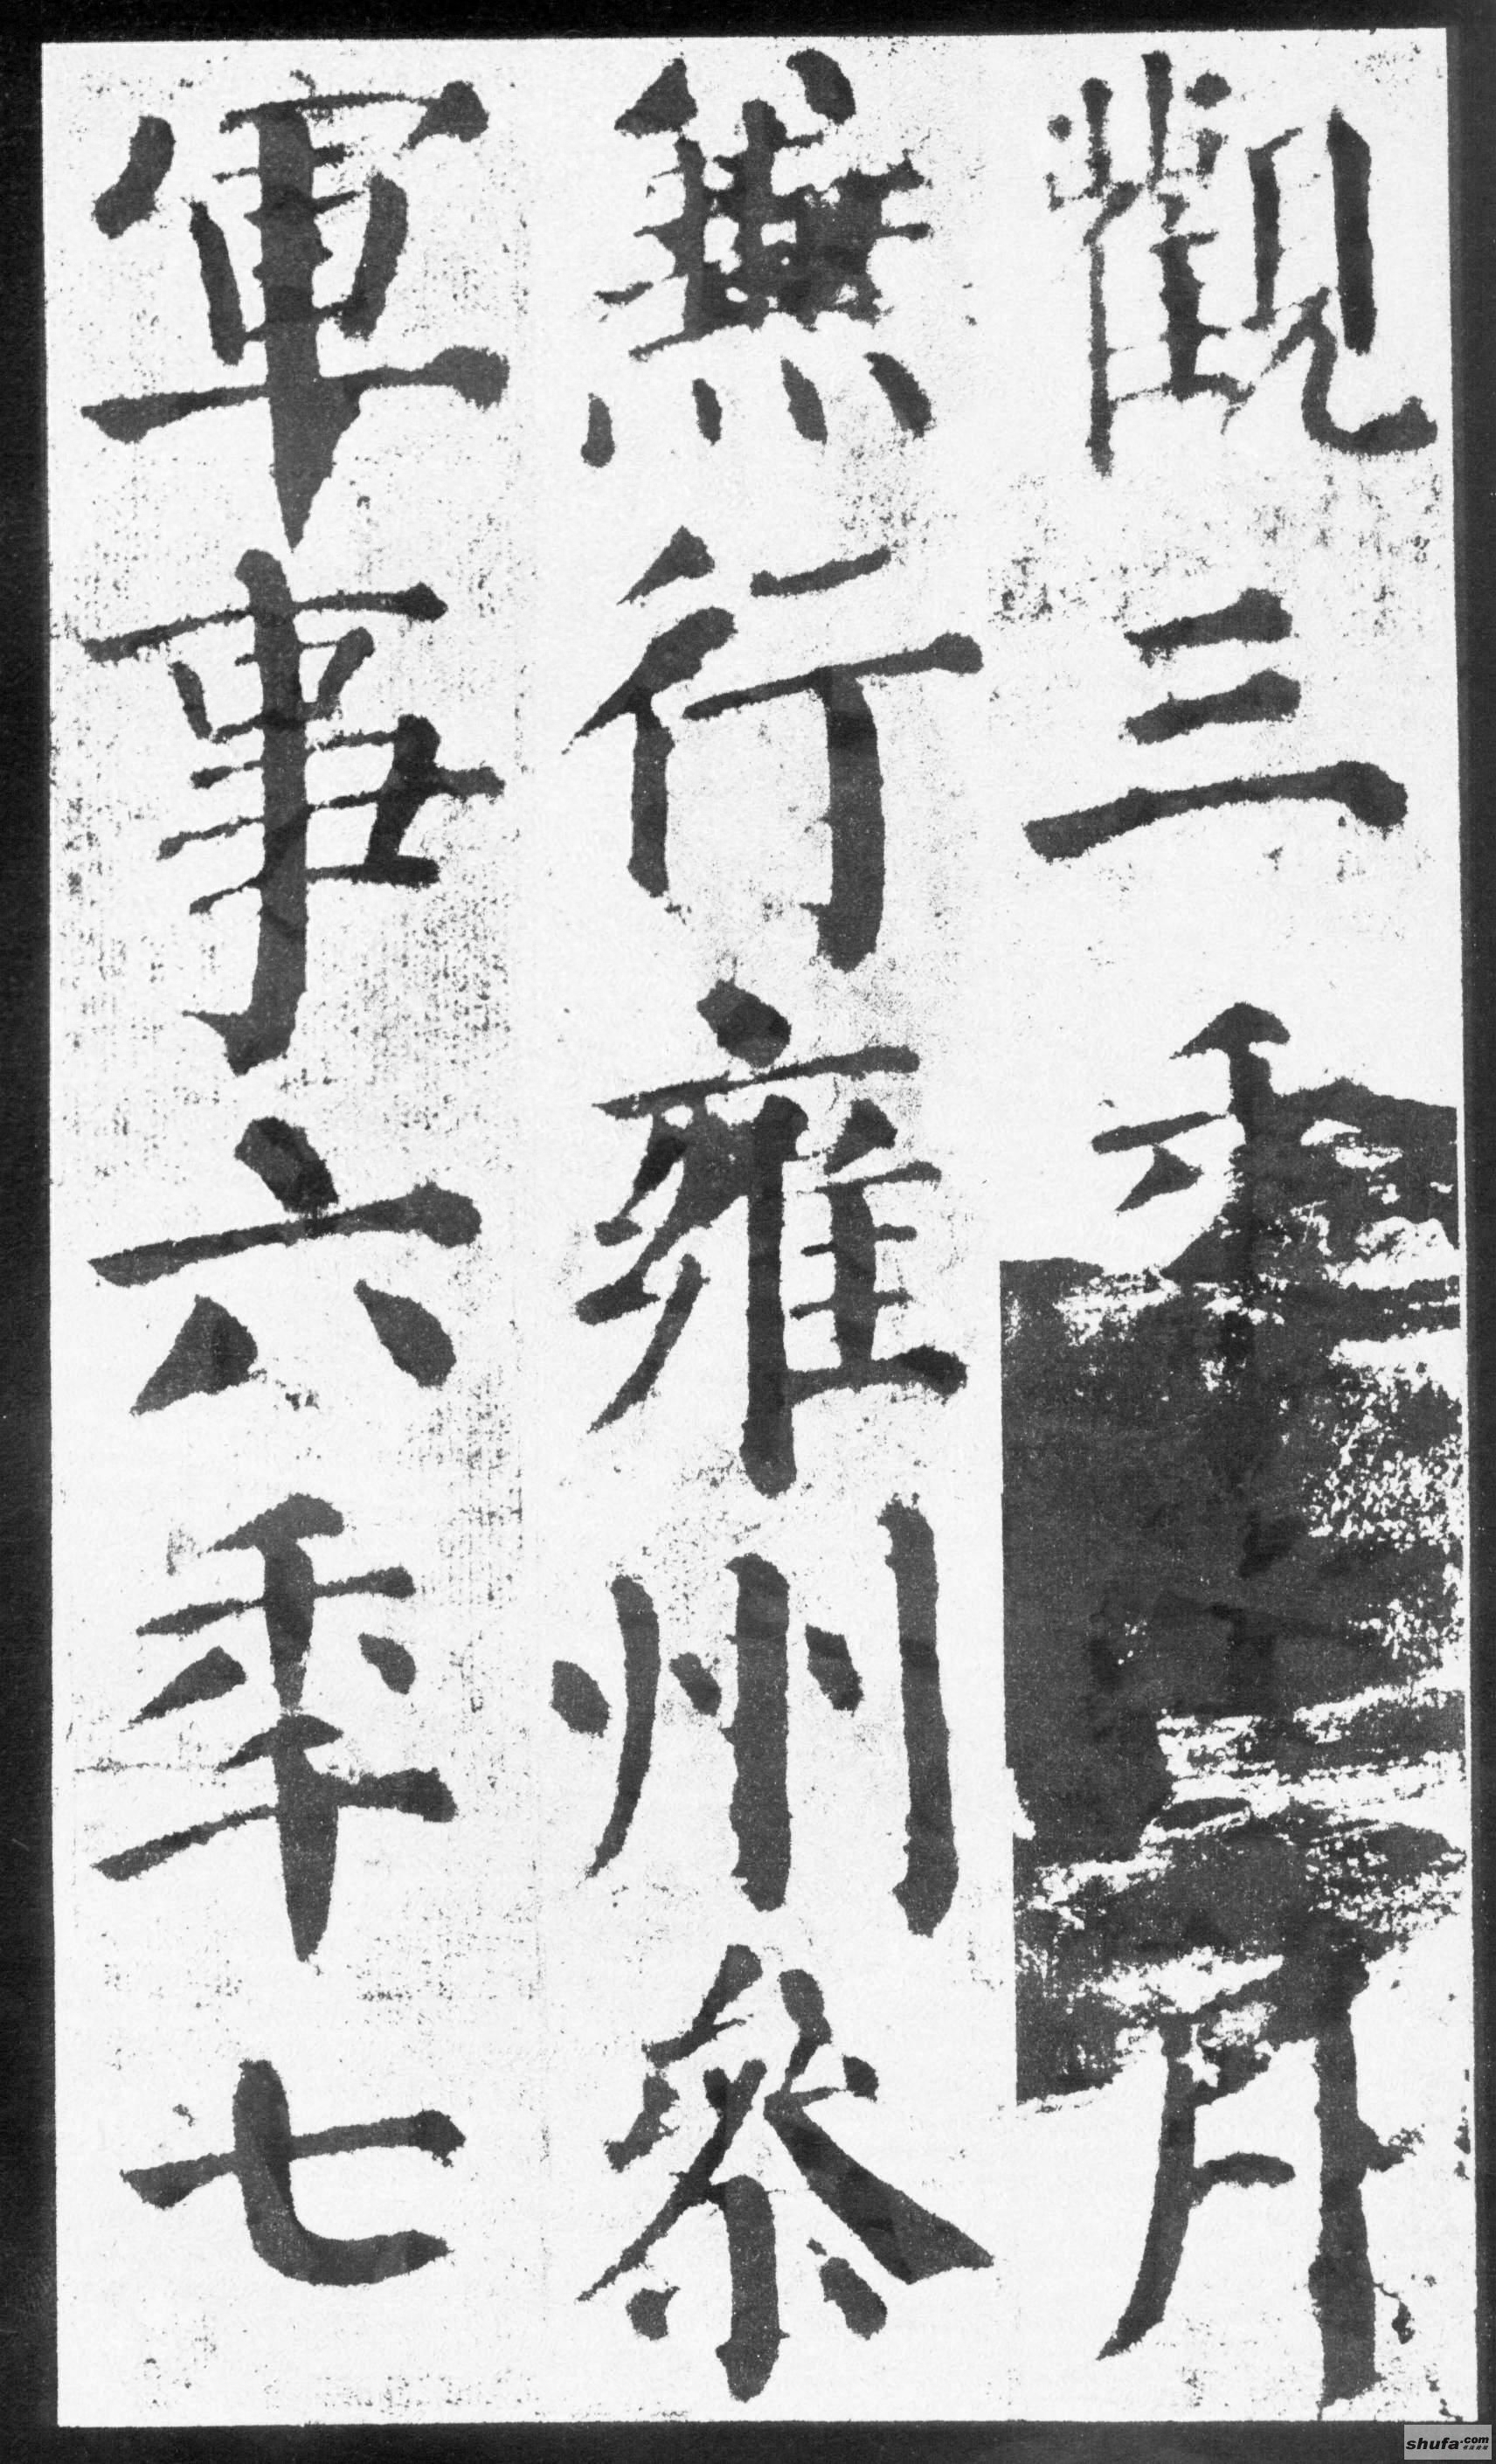 觀三秊月
兼行雍州叅
軍事六秊七
shufa.com